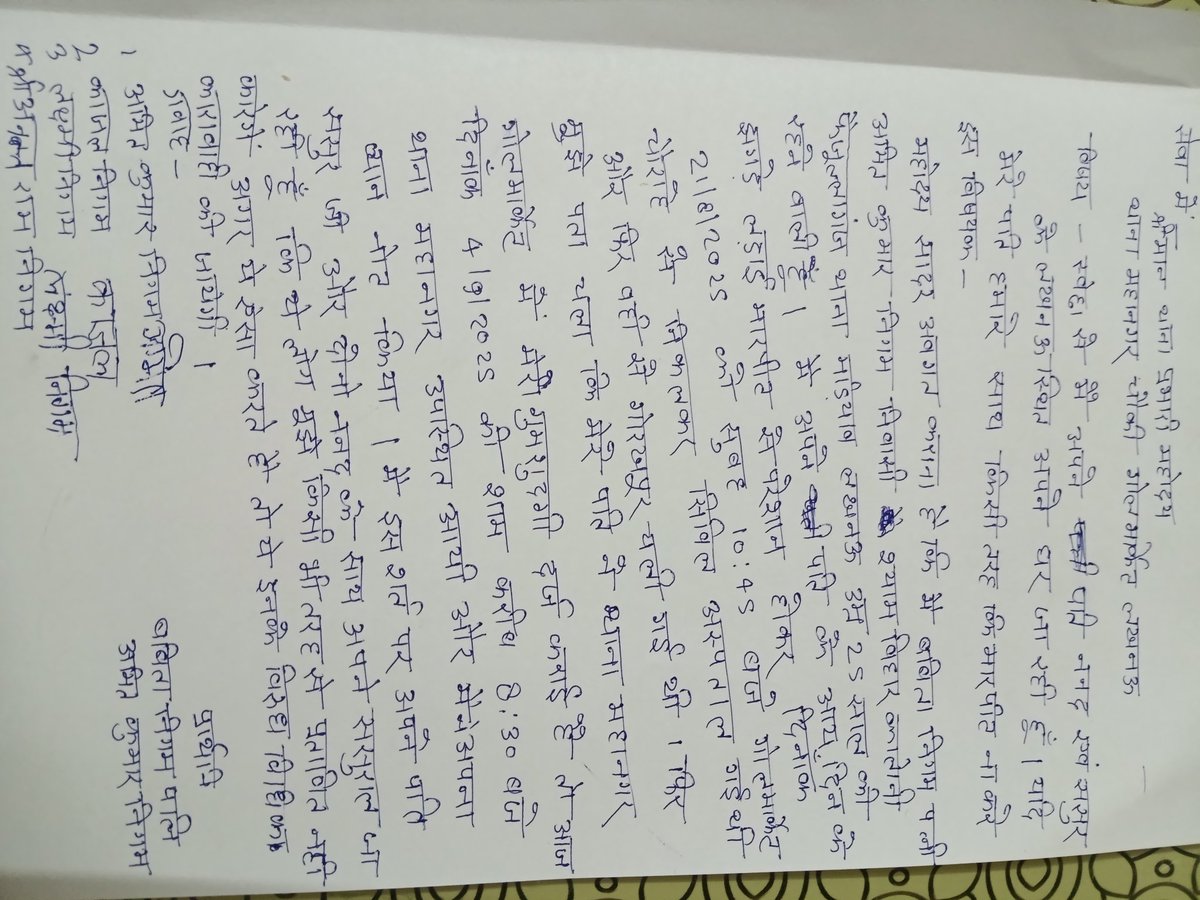 सेवा में
श्रीमान थाना प्रभारी महोदय
थाना महानगर चौकी गोल मार्केट लखनऊ
विषय - स्वेक्षा से मै अपने पति ननद एवं ससुर
के लखनऊ स्थित अपने घर जा रही हूँ। यदि
मेरे पति हमारे साथ किसी तरह कि मारपीट ना करे
इस विषयक -
महोदय सादर अवगत कराना है कि मै बबिता निगम पत्नी
अमित कुमार निगम निवासी श्याम विहार कालोनी
फैजुल्लागंज थाना मडियाव लखनऊ उम्र 25 साल की
रहने वाली हूँ। मै अपने पति के आये दिन के
झगड़े लड़ाई मारपीट से परेशान होकर दिनांक
21/8/2025 को सुबह 10:45 बजे गोलमार्केट
चौराहे से निकलकर सिविल अस्पताल गई थी
और फिर वही से गोरखपुर चली गई थी। फिर
मुझे पता चला कि मेरे पति ने थाना महानगर
गोलमार्केट में मेरी गुमशुदगी दर्ज कराई है तो आज
दिनांक 4/9/2025 को शाम करीब 8:30 बजे
थाना महानगर उपस्थित आयी और मैने अपना
बयान नोट किया। मै इस शर्त पर अपने पति
ससुर जी और दोनो ननद के साथ अपने ससुराल जा
रही हूँ कि ये लोग मुझे किसी भी तरह से प्रताणित नही
करेगे अगर ये ऐसा करते है तो ये इनके विरुध विधिक
कारावाही की जायेगी।
गवाह -
1 अमित कुमार निगम अमित
2 काजल निगम काजल
3 लक्ष्मी निगम लक्ष्मी निगम
4 श्री राम निगम
प्रार्थीनि
बबिता निगम पत्नि
अमित कुमार निगम